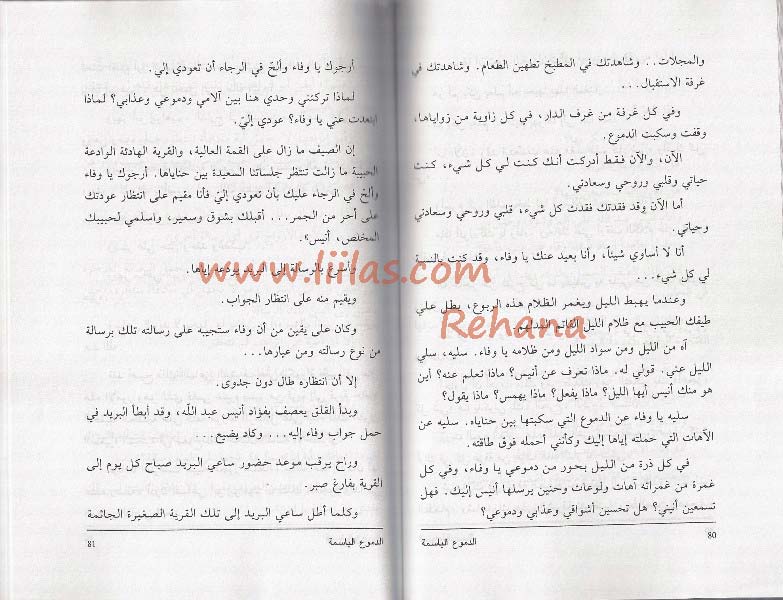 والمجلات.. وشاهدتك في المطبخ تطهين الطعام. وشاهدتك في
غرفة الاستقبال...
وفي كل غرفة من غرف الدار، في كل زاوية من زواياها،
وقفت وسكبت الدموع.
الآن، والآن فقط أدركت أنك كنت لي كل شيء، كنت
حياتي وقلبي وروحي وسعادتي.
أما الآن وقد فقدتك فقدت كل شيء، قلبي وروحي وسعادتي
وحياتي.
أنا لا أساوي شيئاً، وأنا بعيد عنك يا وفاء، وقد كنت بالنسبة
لي كل شيء...
وعندما يهبط الليل ويغمر الظلام هذه الربوع، يطل علي
طيفك الحبيب مع ظلام الليل القاتم المدلهم.
آه من الليل ومن سواد الليل ومن ظلامه يا وفاء. سليه، سلي
الليل عني. قولي له. ماذا تعرف عن أنيس؟ ماذا تعلم عنه؟ أين
هو منك أنيس أيها الليل؟ ماذا يفعل؟ ماذا يهمس؟ ماذا يقول؟
سليه يا وفاء عن الدموع التي سكبتها بين حناياه. سليه عن
الآهات التي حملته إياها إليك وكأنني أحمله فوق طاقته.
في كل ذرة من الليل بحور من دموعي يا وفاء، وفي كل
غمرة من غمراته آهات ولوعات وحنين يرسلها أنيس إليك. فهل
تسمعين أنيني؟ هل تحسين أشواقي وعذابي ودموعي؟
80
الدموع الباسمة
أرجوك يا وفاء وألحّ في الرجاء أن تعودي إلي.
لماذا تركتني وحدي هنا بين آلامي ودموعي وعذابي؟ لماذا
ابتعدت عني يا وفاء؟ عودي إليّ.
إن الصيف ما زال على القمة العالية، والقرية الهادئة الوادعة
الحبيبة ما زالت تنتظر جلساتنا السعيدة بين حناياها. أرجوك يا وفاء
وألحّ في الرجاء عليك بأن تعودي إليّ فأنا مقيم على انتظار عودتك
على أحر من الجمر... أقبلك بشوق وسعير، واسلمي لحبيبك
المخلص، أنيس».
وأسرع بالرسالة إلى البريد يودعه إياها.
ويقيم منه على انتظار الجواب.
وكان على يقين من أن وفاء ستجيبه على رسالته تلك برسالة
من نوع رسالته ومن عيارها...
إلا أن انتظاره طال دون جدوى.
وبدأ القلق يعصف بفؤاد أنيس عبد الله، وقد أبطأ البريد في
حمل جواب وفاء إليه... وكاد يضيع...
وراح يرقب موعد حضور ساعي البريد صباح كل يوم إلى
القرية بفارغ صبر.
وكلما أطل ساعي البريد إلى تلك القرية الصغيرة الجاثمة
الدموع الباسمة
81
www.liilas.com
Rehana